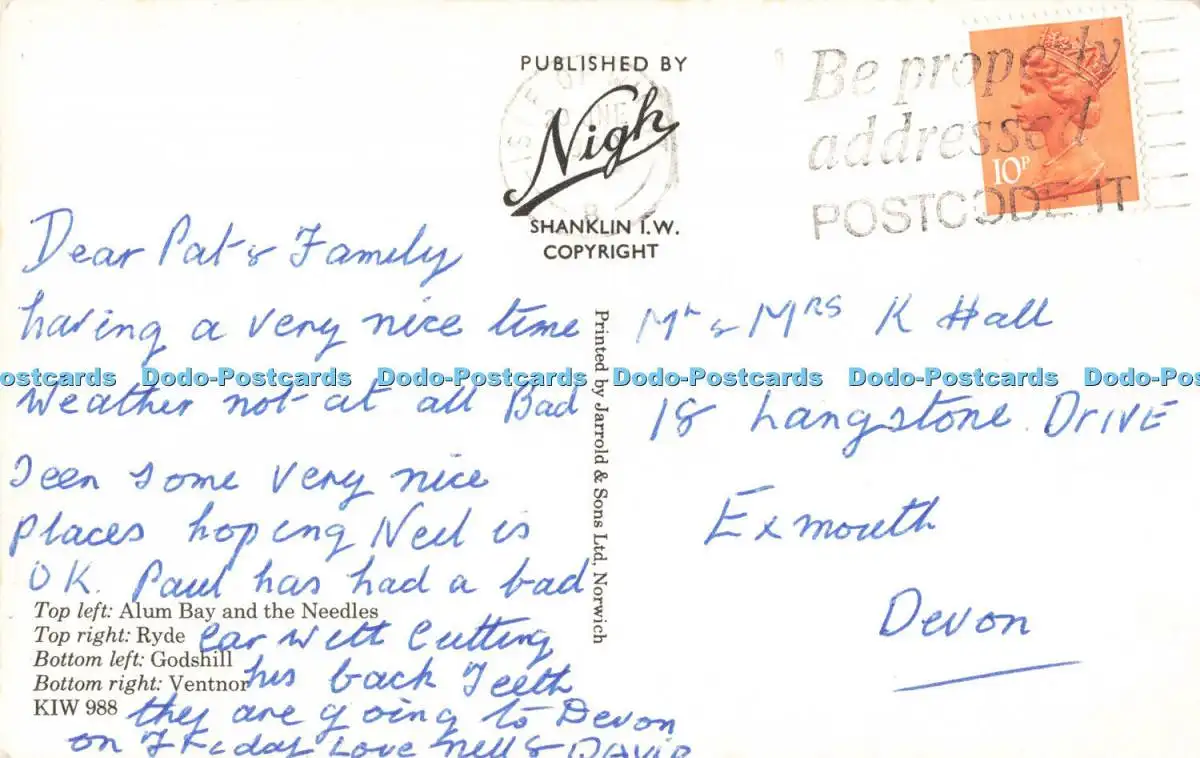 PUBLISHED BY
Nigh
SHANKLIN I.W.
COPYRIGHT
Be properly
addressed
POSTCODE IT
10P
Dear Pat & Family
having a very nice time
Weather not at all Bad
Seen some very nice
places hoping Neil is
OK. Paul has had a bad
Ear with Cutting
his back Teeth
they are going to Devon
on Friday Love Nell & DAVID
Mr & MRS K Hall
18 Langstone DRIVE
Exmouth
Devon
Printed by Jarrold & Sons Ltd, Norwich
Top left: Alum Bay and the Needles
Top right: Ryde
Bottom left: Godshill
Bottom right: Ventnor
KIW 988
ostcards Dodo-Postcards Dodo-Postcards Dodo-Postcards Dodo-Postcards Dodo-Pos